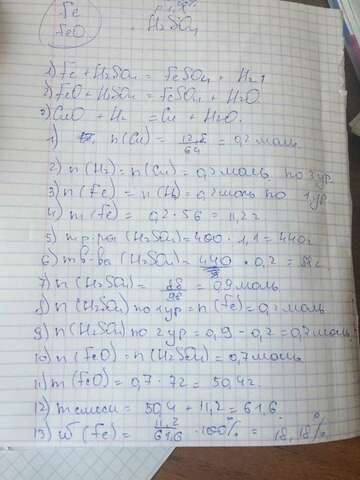 Fe
FeO
H₂SO₄
1) Fe + H₂SO₄ = FeSO₄ + H₂↑
2) FeO + H₂SO₄ = FeSO₄ + H₂O
3) CuO + H₂ = Cu + H₂O.
1) n(Cu) = 12,8/64 = 0,2 моль
2) n(H₂) = n(Cu) = 0,2 моль по 3 ур.
3) n(Fe) = n(H₂) = 0,2 моль по 1 ур
4) m(Fe) = 0,2 · 56 = 11,2 г
5) m р-ра (H₂SO₄) = 400 · 1,1 = 440 г
6) m в-ва (H₂SO₄) = 440 · 0,2 = 88 г
7) n(H₂SO₄) = 88/98 = 0,9 моль
8) n(H₂SO₄) по 1 ур = n(Fe) = 0,2 моль
9) n(H₂SO₄) по 2 ур = 0,9 - 0,2 = 0,7 моль
10) n(FeO) = n(H₂SO₄) = 0,7 моль
11) m(FeO) = 0,7 · 72 = 50,4 г.
12) m смеси = 50,4 + 11,2 = 61,6
13) W(Fe) = 11,2/61,6 · 100% = 18,18%